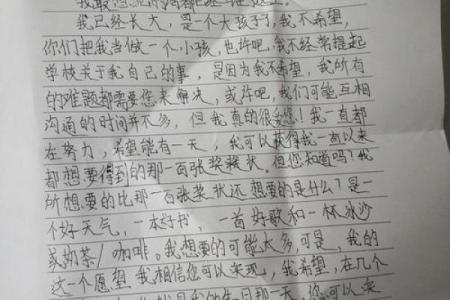 我已经长大，是个大孩子了，我不希望，
你们把我当做一个小孩，也许吧，我不经常提起
学校关于我自己的事，是因为我不希望，我所有
的难题都需要您来解决，或许吧，我们可能互相
沟通的时间并不多，但我真的很爱您！我一直都
在努力，希望能有一天，我可以获得我一直以来
都想要得到的那一百张奖状。但您知道吗？我
所想要的比那一百张奖状还想要的是什么？是一
个好天气，一本好书，一首好歌和一杯冰沙
或奶茶/咖啡。我想要的可能太多，可是，我的
这一个愿望我相信您可以来现，我希望，在几个
我的生日那一天，您可以来